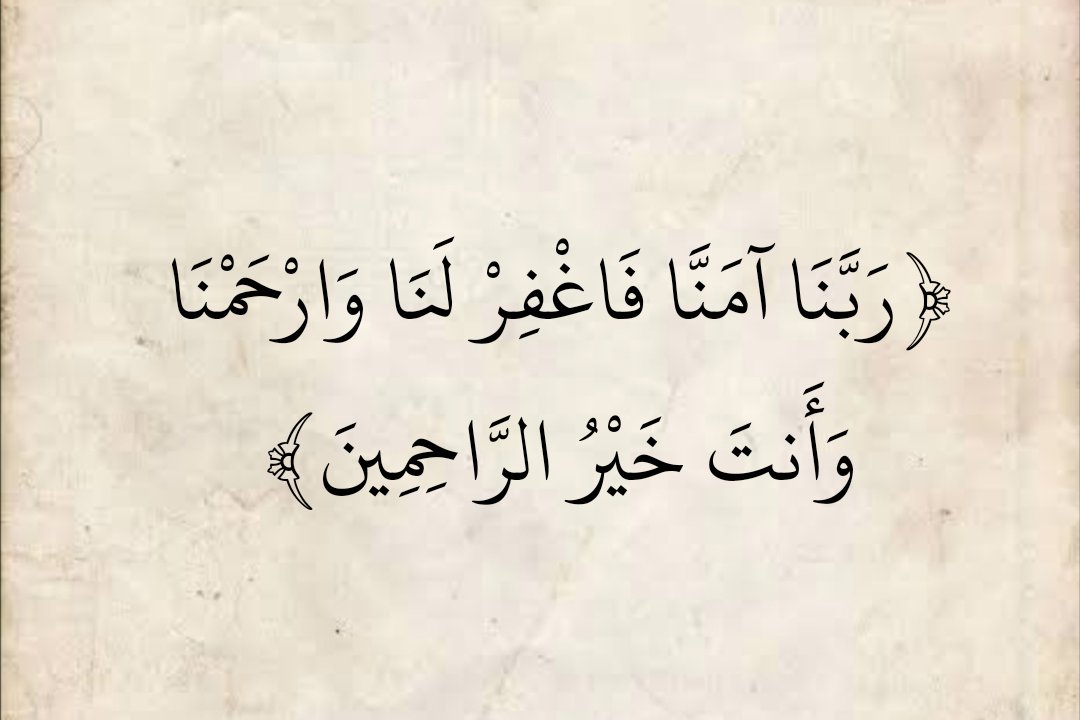 ﴿رَبَّنَا آمَنَّا فَاغْفِرْ لَنَا وَارْحَمْنَا
وَأَنتَ خَيْرُ الرَّاحِمِينَ﴾